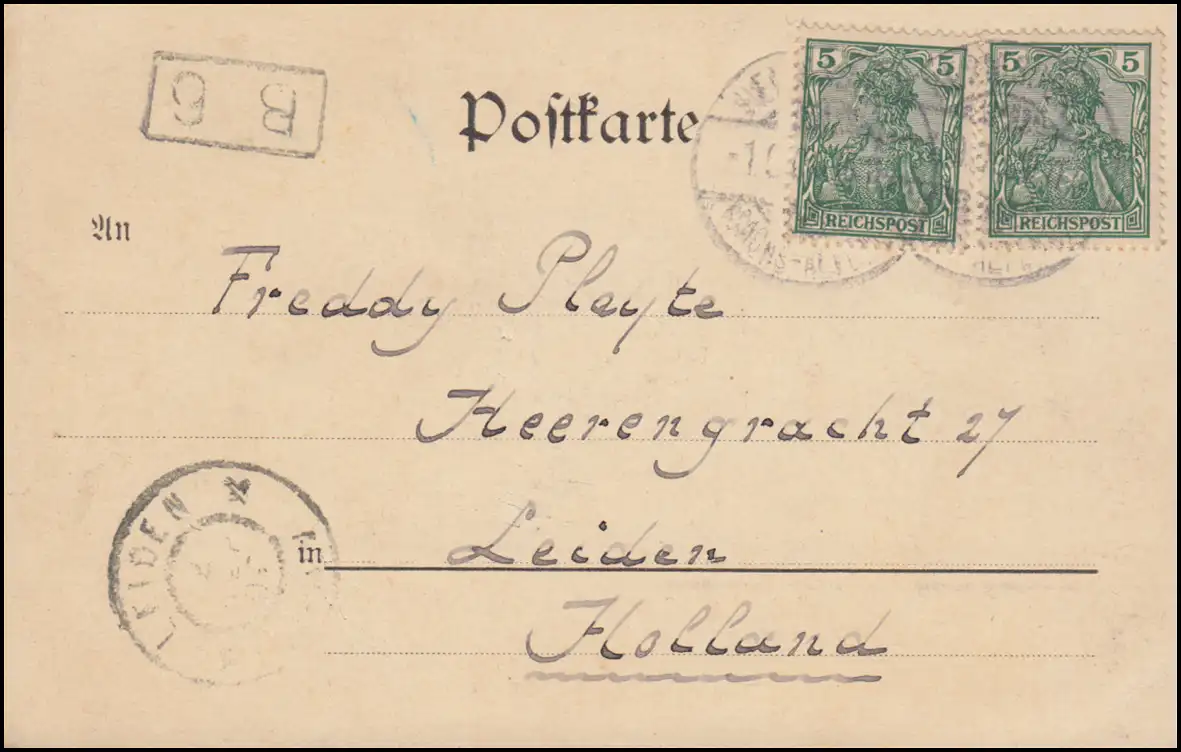 Postkarte
5 5
REICHSPOST
5 5
REICHSPOST
An
Freddy Pleyte
Heerengracht 27
in Leiden
Holland
LEIDEN